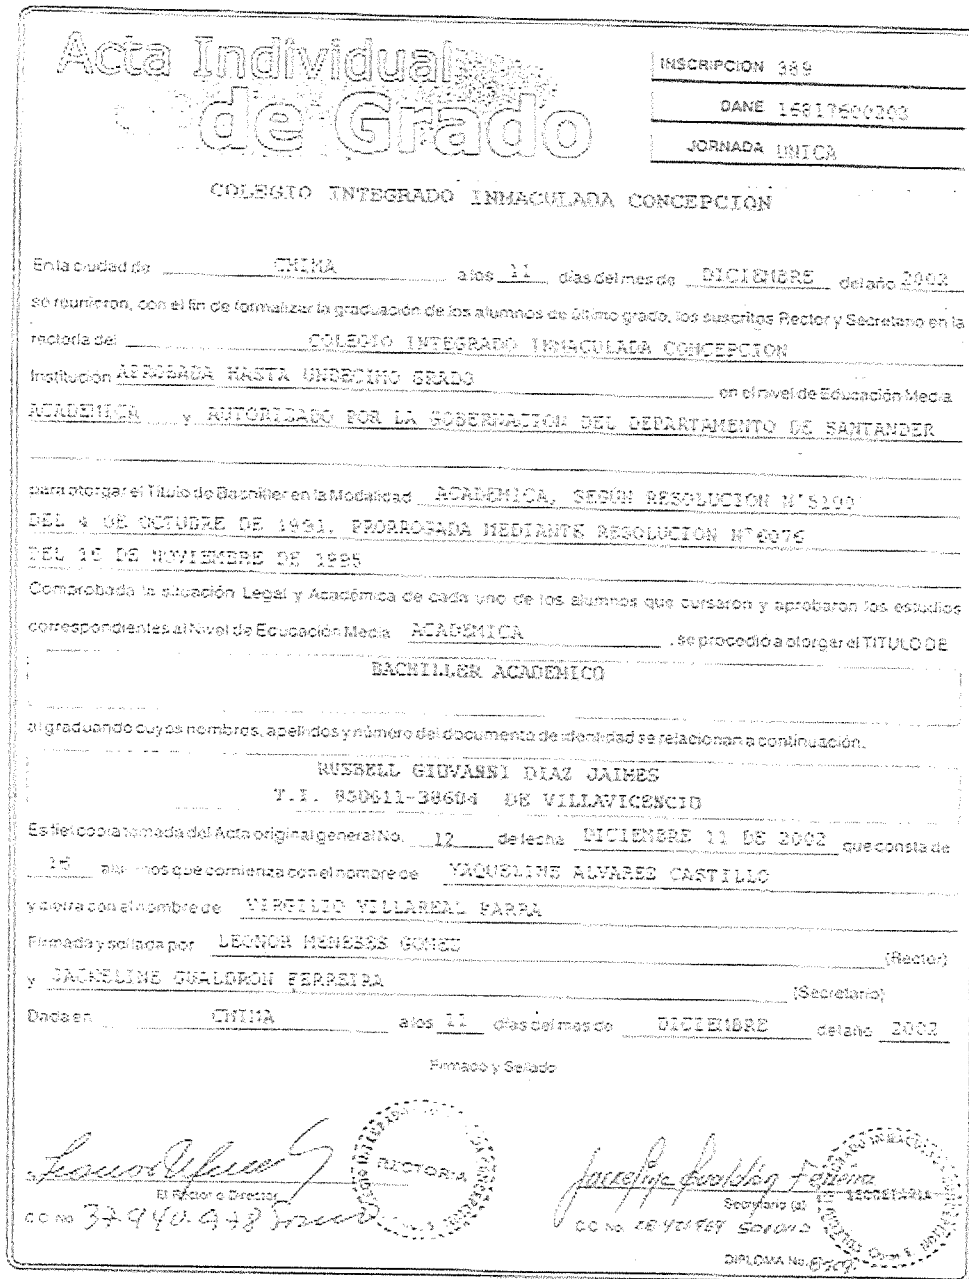 Acta Individual
de Grado
INSCRIPCION 389
DANE 16817600203
JORNADA UNICA
COLEGIO INTEGRADO INMACULADA CONCEPCION
En la ciudad de CHIMA a los 11 días del mes de DICIEMBRE del año 2002
se reunieron, con el fin de formalizar la graduación de los alumnos de último grado, los suscritos Rector y Secretario en la
rectoría del COLEGIO INTEGRADO INMACULADA CONCEPCION
Institución APROBADA HASTA UNDECIMO GRADO en el nivel de Educación Media
ACADEMICA y AUTORIZADO POR LA GOBERNACION DEL DEPARTAMENTO DE SANTANDER
para otorgar el Título de Bachiller en la Modalidad ACADEMICA, SEGUN RESOLUCION N°5100
DEL 4 DE OCTUBRE DE 1991. PRORROGADA MEDIANTE RESOLUCION N°6076
DEL DE NOVIEMBRE DE 1995
Comprobada la situación Legal y Académica de cada uno de los alumnos que cursaron y aprobaron los estudios
correspondientes al Nivel de Educación Media ACADEMICA , se procedió a otorgar el TITULO DE
BACHILLER ACADEMICO
al graduando cuyos nombres, apellidos y número del documento de identidad se relacionan a continuación.
RUSSELL GIOVANNI DIAZ JAIMES
T.I. 850611-38604 DE VILLAVICENCIO
Es fiel copia tomada del Acta original general No. 12 de fecha DICIEMBRE 11 DE 2002 que consta de
alumnos que comienza con el nombre de YAQUELINE ALVAREZ CASTILLO
y cierra con el nombre de VIRGILIO VILLAREAL PARRA
Firmada y sellada por LEONOR MENESES GOMEZ (Rector)
y JACKELINE GUALDRON FERREIRA (Secretario)
Dada en CHIMA a los 11 días del mes de DICIEMBRE del año 2002
Firmado y Sellado
RECTORIA
El Rector o Director
C.C No. 37.940.978 Socorro
Jackeline Gualdrón Ferreira
SECRETARIA
Secretario (a)
C.C No. Socorro
DIPLOMA No.